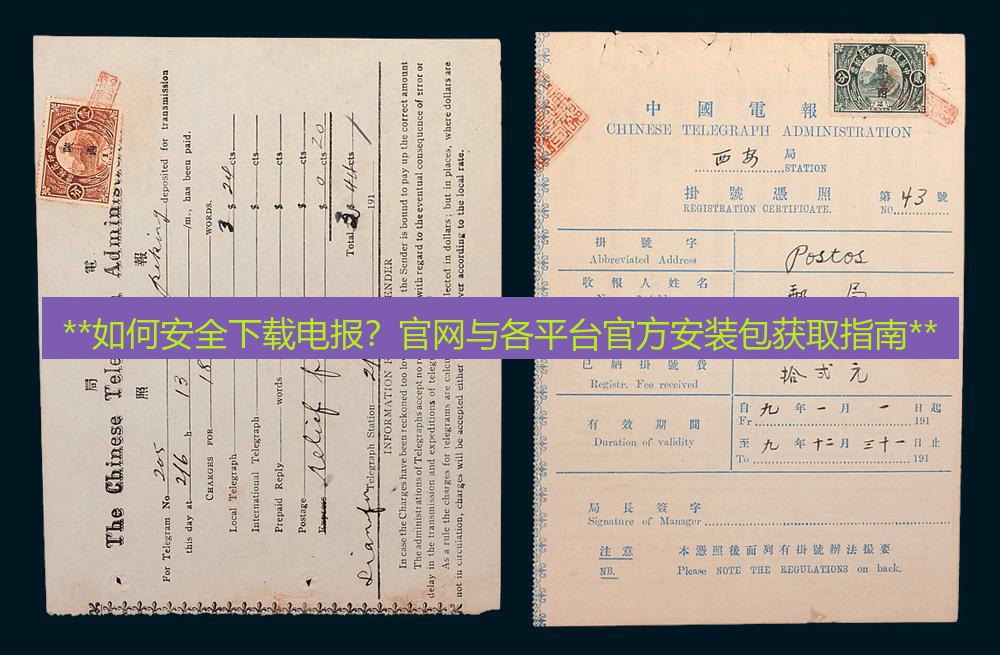 **如何安全下载电报？官网与各平台官方安装包获取指南**
電報局
照
The Chinese Tele
Administ
For Telegram No. 205
deposited for transmission
this day at 2/6 h 13
/m, has been paid.
CHARGES FOR
WORDS.
Local Telegraph
$ cts
International Telegraph
$ cts
Prepaid Reply words
$ cts
Postage
$ cts
Express relief
Total $ cts
Telegraph Station
191
INFORMATION
ENDER
In case the Charges have been reckoned too lo
the Sender is bound to pay up the correct amount
The administrations of Telegraphs accept no r
with regard to the eventual consequence of error or
delay in the transmission and expeditions of teleg
As a rule the charges for telegrams are calcu
llected in dollars; but in places, where dollars are
not in circulation, charges will be accepted either
ver according to the local rate.
中國電報
CHINESE TELEGRAPH ADMINISTRATION
西安 局
STATION
掛號憑照
第 43 號
REGISTRATION CERTIFICATE.
NO.
掛號字
Abbreviated Address
Postos
收報人姓名
郵局
已納掛號費
Registr. Fee received
拾弍元
有效期間
Duration of validity
自九年一月一日起
Fr 191
至九年十二月三十一日止
To 191
局長簽字
Signature of Manager
注意 本憑照後面列有掛號辦法撮要
NB. Please NOTE THE REGULATIONS on back.